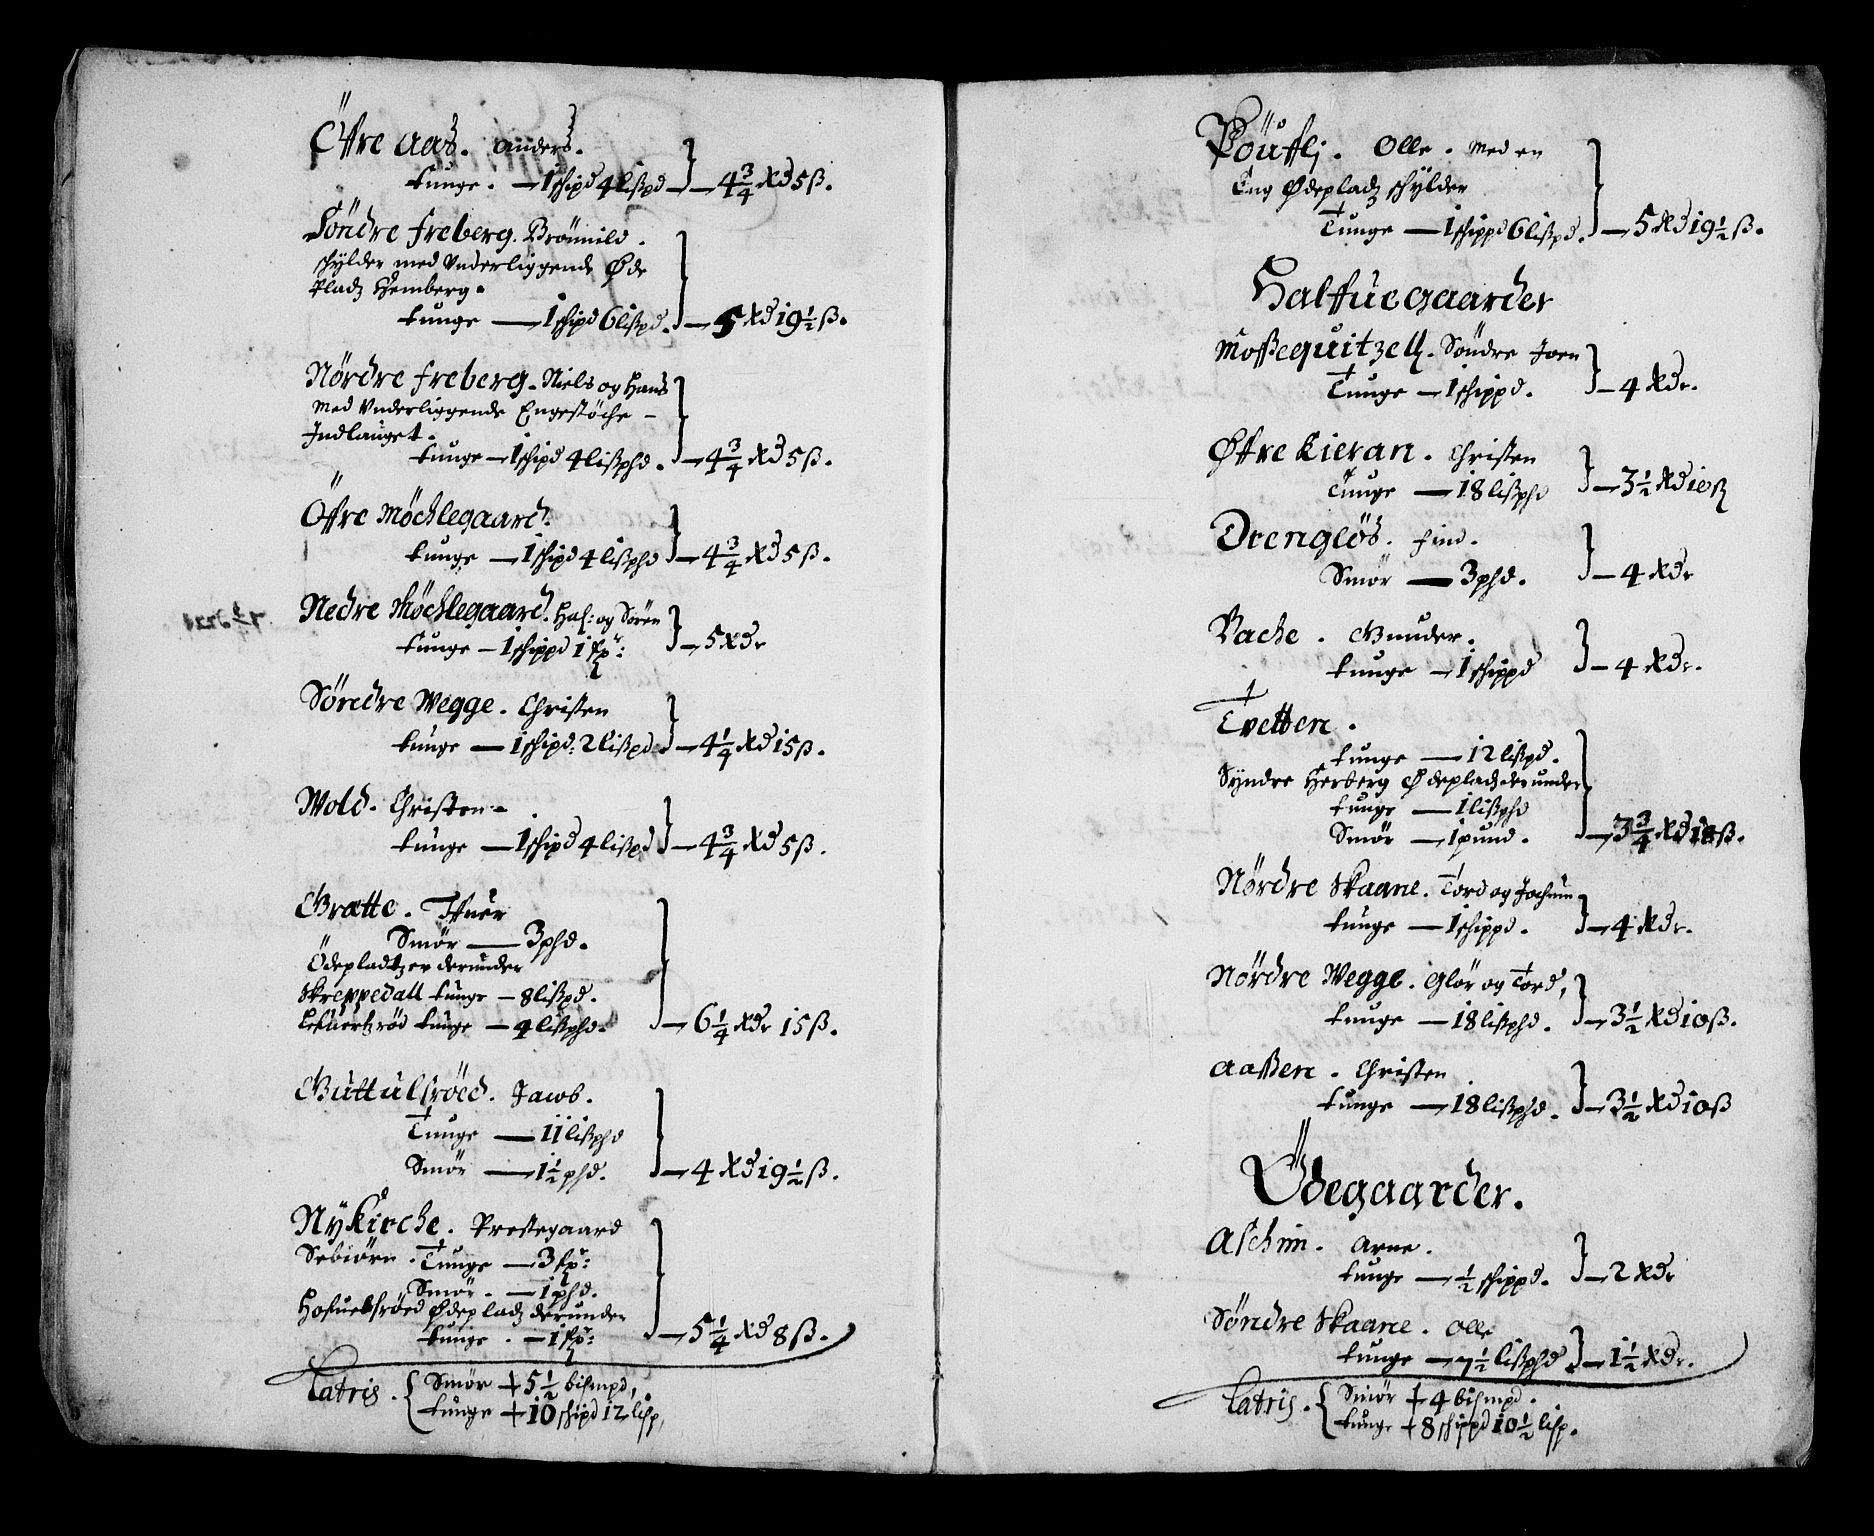 Öffre Aas. Anders.
tunge. — 1 schipd 4 lißpd — 4 3/4 Rd 5 ß.
Söndre freberg. Brönild.
schylder med Vnderliggende Øde
Pladz Hemberg.
tunge — 1 schipd 6 lißpd. — 5 Rd 19 1/2 ß.
Nördre freberg. Niels og Hans
Med Vnderliggende Engestöche —
Indlauget.
tunge — 1 schipd 4 lißphd. — 4 3/4 Rd 5 ß.
Öffre Möchlegaard.
tunge — 1 schipd 4 lißphd — 4 3/4 Rd 5 ß.
Nedre Möchlegaard. Has: og Sören
tunge — 1 schippd 1 fp: — 5 Rdr
Søndre Wegge. Christen
tunge — 1 schipd: 2 lißpd. — 4 1/4 Rd 15 ß.
Wold. Christen —.
tunge — 1 schipd 4 lißpd — 4 3/4 Rd 5 ß.
Gratte. Ifuer
Smör — 3 phd.
Ödepladtzer derunder
Skreppedall tunge — 8 lißpd.
tunge — 4 lißphd. — 6 1/4 Rdr 15 ß.
Guttulsröed. Jacob.
Tunge — 11 lißphd
Smör — 1 1/2 phd. — 4 Rd 19 1/2 ß.
Nykirche. Prestegaard
Sebiörn. Tunge — 3 fp:
Smör. — 1 phd.
Hosuelsröed Ødepladz derunder
tunge. — 1 fp: — 5 1/4 Rd 8 ß.
Latris. Smör + 5 1/2 bismpd,
tunge + 10 schipd 12 lisp,
Olle. Med en
Eng Ødepladz schylder
Tunge — 1 schippd 6 lißpd. — 5 Rd 19 1/2 ß.
Halffuegaarder
Moßequitzell. Søndre Joen
Tunge — 1 schippd. — 4 Rdr.
Øffre Kieran. Christen
Tunge — 18 lißphd — 3 1/2 Rd 10 ß
Drenglös. find.
Smör — 3 phd. — 4 Rdr
Bache. Gunder.
tunge — 1 schippd — 4 Rdr.
Tvetten.
tunge — 12 lißpd.
Syndre Herberg Ødepladz derunder
tunge — 1 lißphd
Smör — 1 pund. — 3 3/4 Rd 18 ß.
Nørdre Skaane. Tord og Jochum
tunge — 1 schippd. — 4 Rdr.
Nørdre Wegge. Glör og Tord,
tunge — 18 lißphd. — 3 1/2 Rd 10 ß.
Aaßen. Christen
tunge — 18 lißphd. — 3 1/2 Rd 10 ß
Ödegaarder.
Aschim. Arne.
tunge — 1/2 schippd. — 2 Rdr
Søndre Skaane. Olle
tunge — 7 1/2 lißphd. — 1 1/2 Rdr.
Latris. Smör + 4 bismpd.
tunge + 8 schippd 10 1/2 lisp.